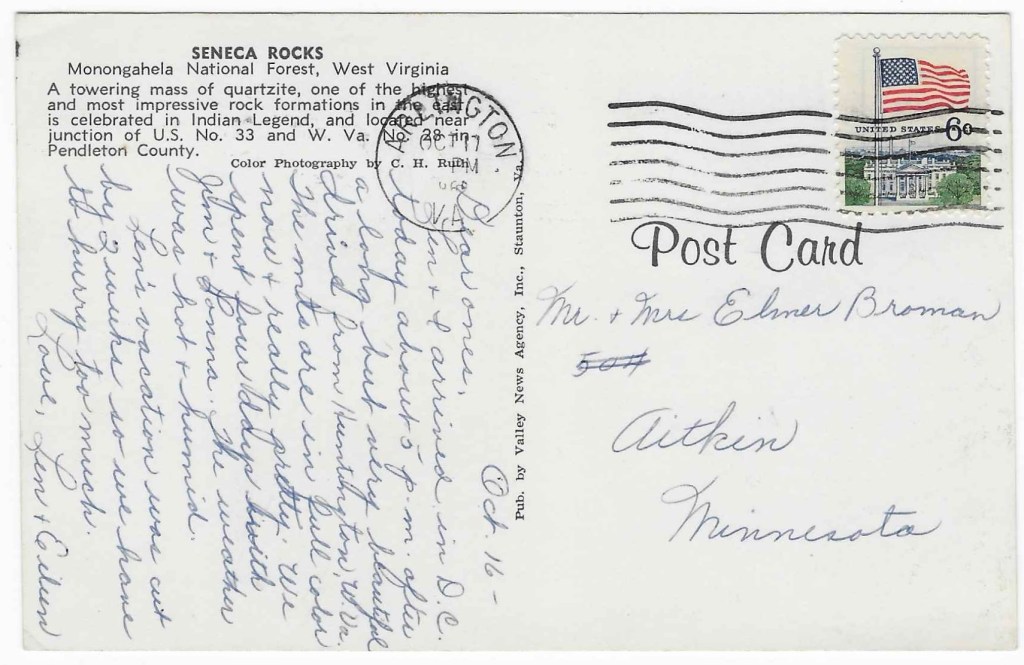 SENECA ROCKS
Monongahela National Forest, West Virginia
A towering mass of quartzite, one of the highest
and most impressive rock formations in the east
is celebrated in Indian Legend, and located near
junction of U.S. No. 33 and W. Va. No. 28 in
Pendleton County.
Color Photography by C. H. Ruth
ARLINGTON
OCT 17
PM
VA
UNITED STATES 6¢
Post Card
Pub. by Valley News Agency, Inc., Staunton, Va.
Oct. 16 -
Dear ones,
Len & I arrived in D.C.
today about 5 p.m. after
a long but very beautiful
drive from Huntington, W. Va.
The mts are in full color
now & really pretty. We
spent four days with
Jim & Donna. The weather
was hot & humid.
Len's vacation was cut
by 2 weeks so we have
to hurry too much.
Love, Len & Eileen
Mr. & Mrs Elmer Broman
504
Aitkin
Minnesota